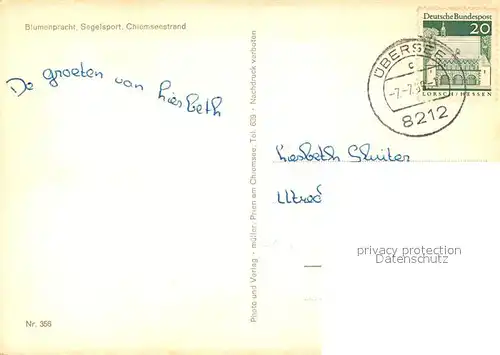 Blumenpracht, Segelsport, Chiemseestrand
De groeten van Liesbeth.
Nr. 356
Photo und Verlag - müller, Prien am Chiemsee, Tel. 639 - Nachdruck verboten
Deutsche Bundespost
20
LORSCH/HESSEN
ÜBERSEE
c
8212
Liesbeth Sluiter
Utrec
privacy protection
Datenschutz